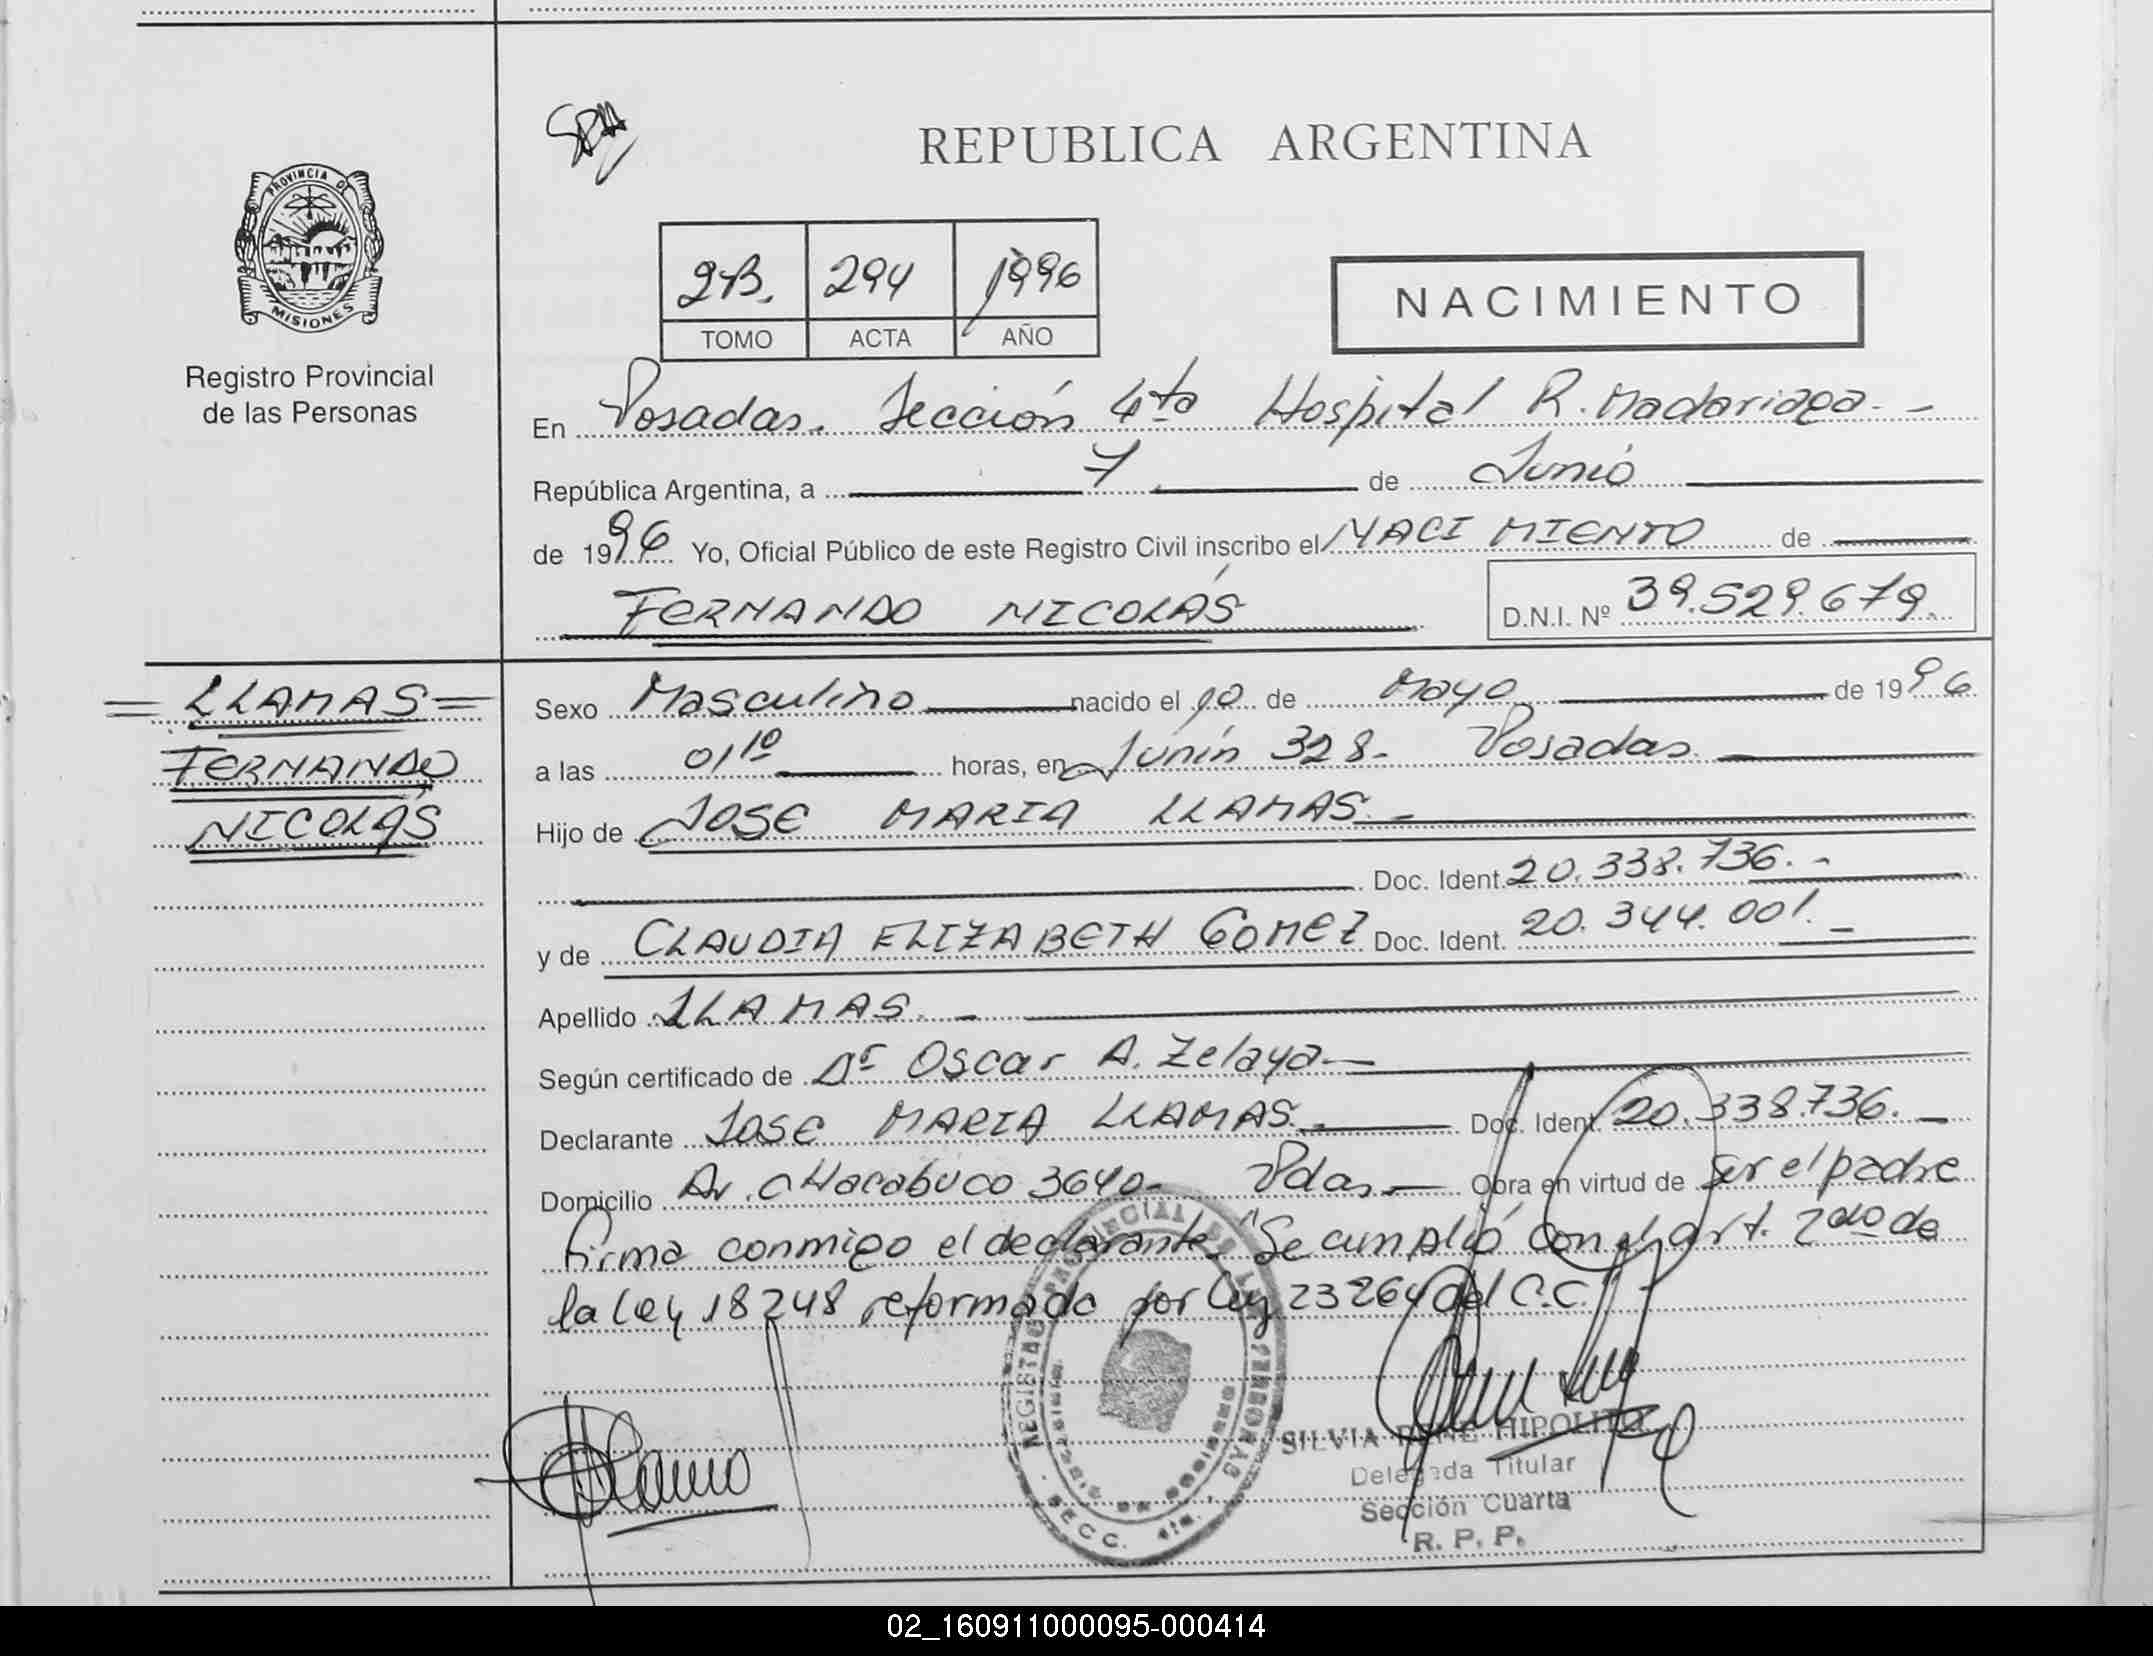 REPUBLICA ARGENTINA
PROVINCIA DE
MISIONES
Registro Provincial
de las Personas
2B. 294 1996
TOMO ACTA AÑO
NACIMIENTO
En Posadas. Sección 4ta Hospital R. Madariaga. -
República Argentina, a 7 de Junio
de 1996 Yo, Oficial Público de este Registro Civil inscribo el NACIMIENTO de
FERNANDO NICOLÁS D.N.I. Nº 39.529.679.
= LLAMAS =
FERNANDO
NICOLÁS
Sexo Masculino nacido el 10 de Mayo de 1996
a las 01 10 horas, en Junín 328- Posadas
Hijo de JOSE MARIA LLAMAS. -
Doc. Ident. 20.338.736. -
y de CLAUDIA ELIZABETH GOMEZ Doc. Ident. 20.344.001. -
Apellido LLAMAS. -
Según certificado de Dr Oscar A. Zelaya
Declarante JOSE MARIA LLAMAS. Doc. Ident. 20.338.736. -
Domicilio Av. CHacabuco 3640- Pdas. Obra en virtud de ser el padre
firma conmigo el declarante. "Se cumplió con el art. 2do de
la ley 18248 reformado por ley 23264 del C.C."
REGISTRO PROVINCIAL DE LAS PERSONAS
SECC. 4ta.
SILVIA RENE HIPOLITO
Delegada Titular
Sección Cuarta
R. P. P.
02_160911000095-000414